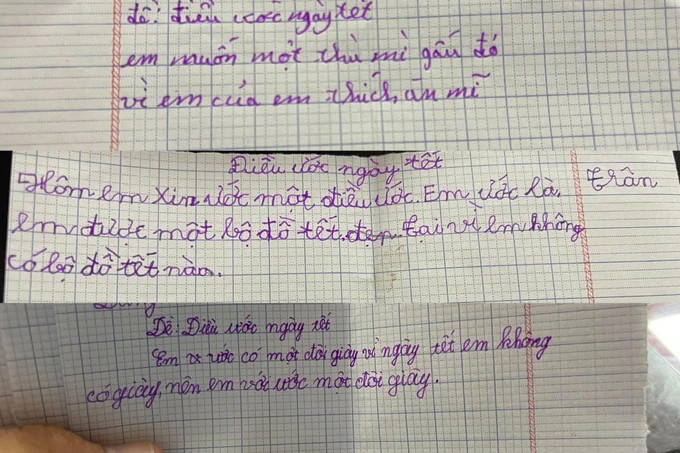 đề: điều ước ngày tết
em muốn một thù mì gấu đó
vì em của em thích ăn mĩ
Điều ước ngày tết
Hôm em xin ước một điều ước. Em ước là, trân
em được một bộ đồ tết đẹp. Tại vì em không
có bộ đồ tết nào.
Đề: Điều ước ngày tết
Em ước có một đôi giày vì ngày tết em không
có giày, nên em với ước một đôi giày.